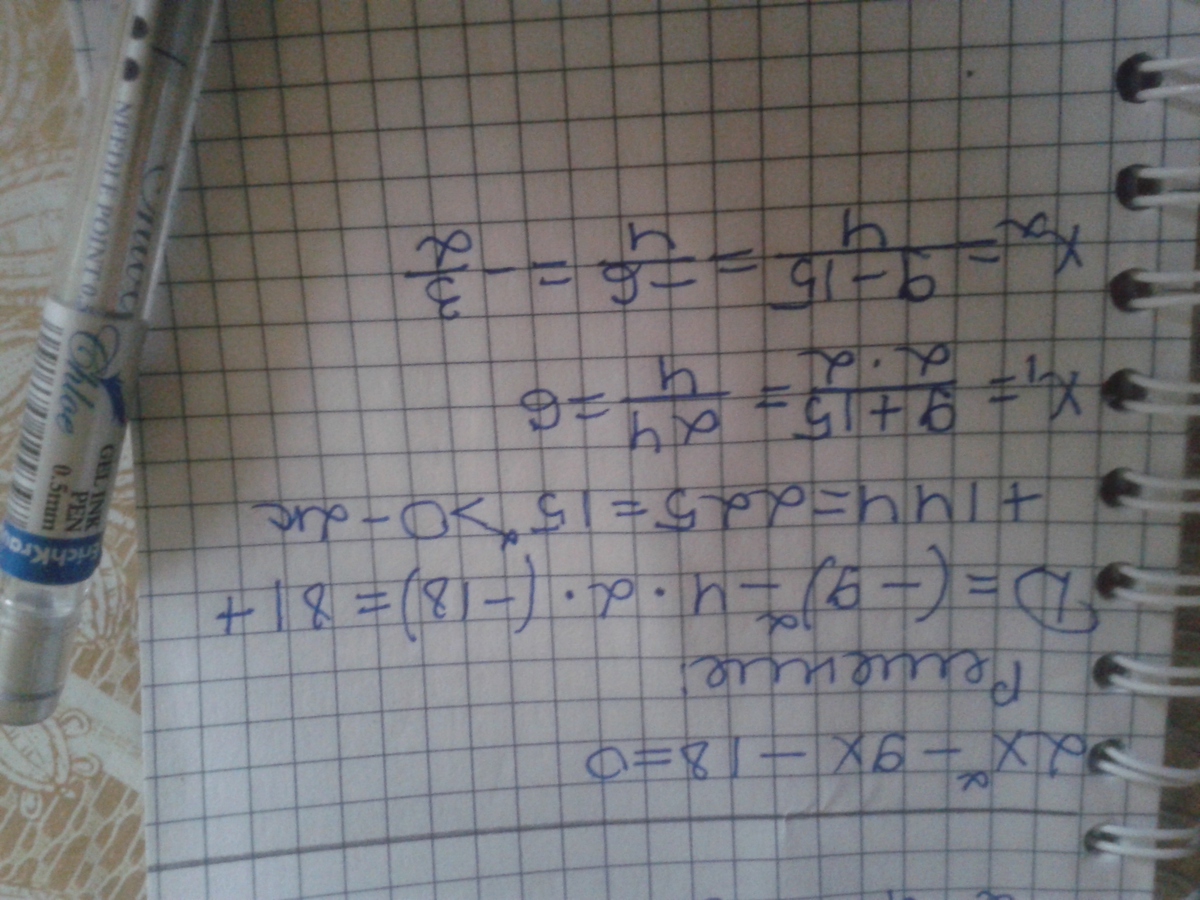 2x² - 9x - 18 = 0
Решение:
D = (-9)² - 4 · 2 · (-18) = 81 +
+ 144 = 225 = 15² > 0 - 2к
x₁ = (9 + 15)/(2 · 2) = 24/4 = 6
x₂ = (9 - 15)/4 = -6/4 = - 3/2
NEEDLE POINT 0.5
Chloe
GEL INK
PEN
0.5mm
ErichKrau